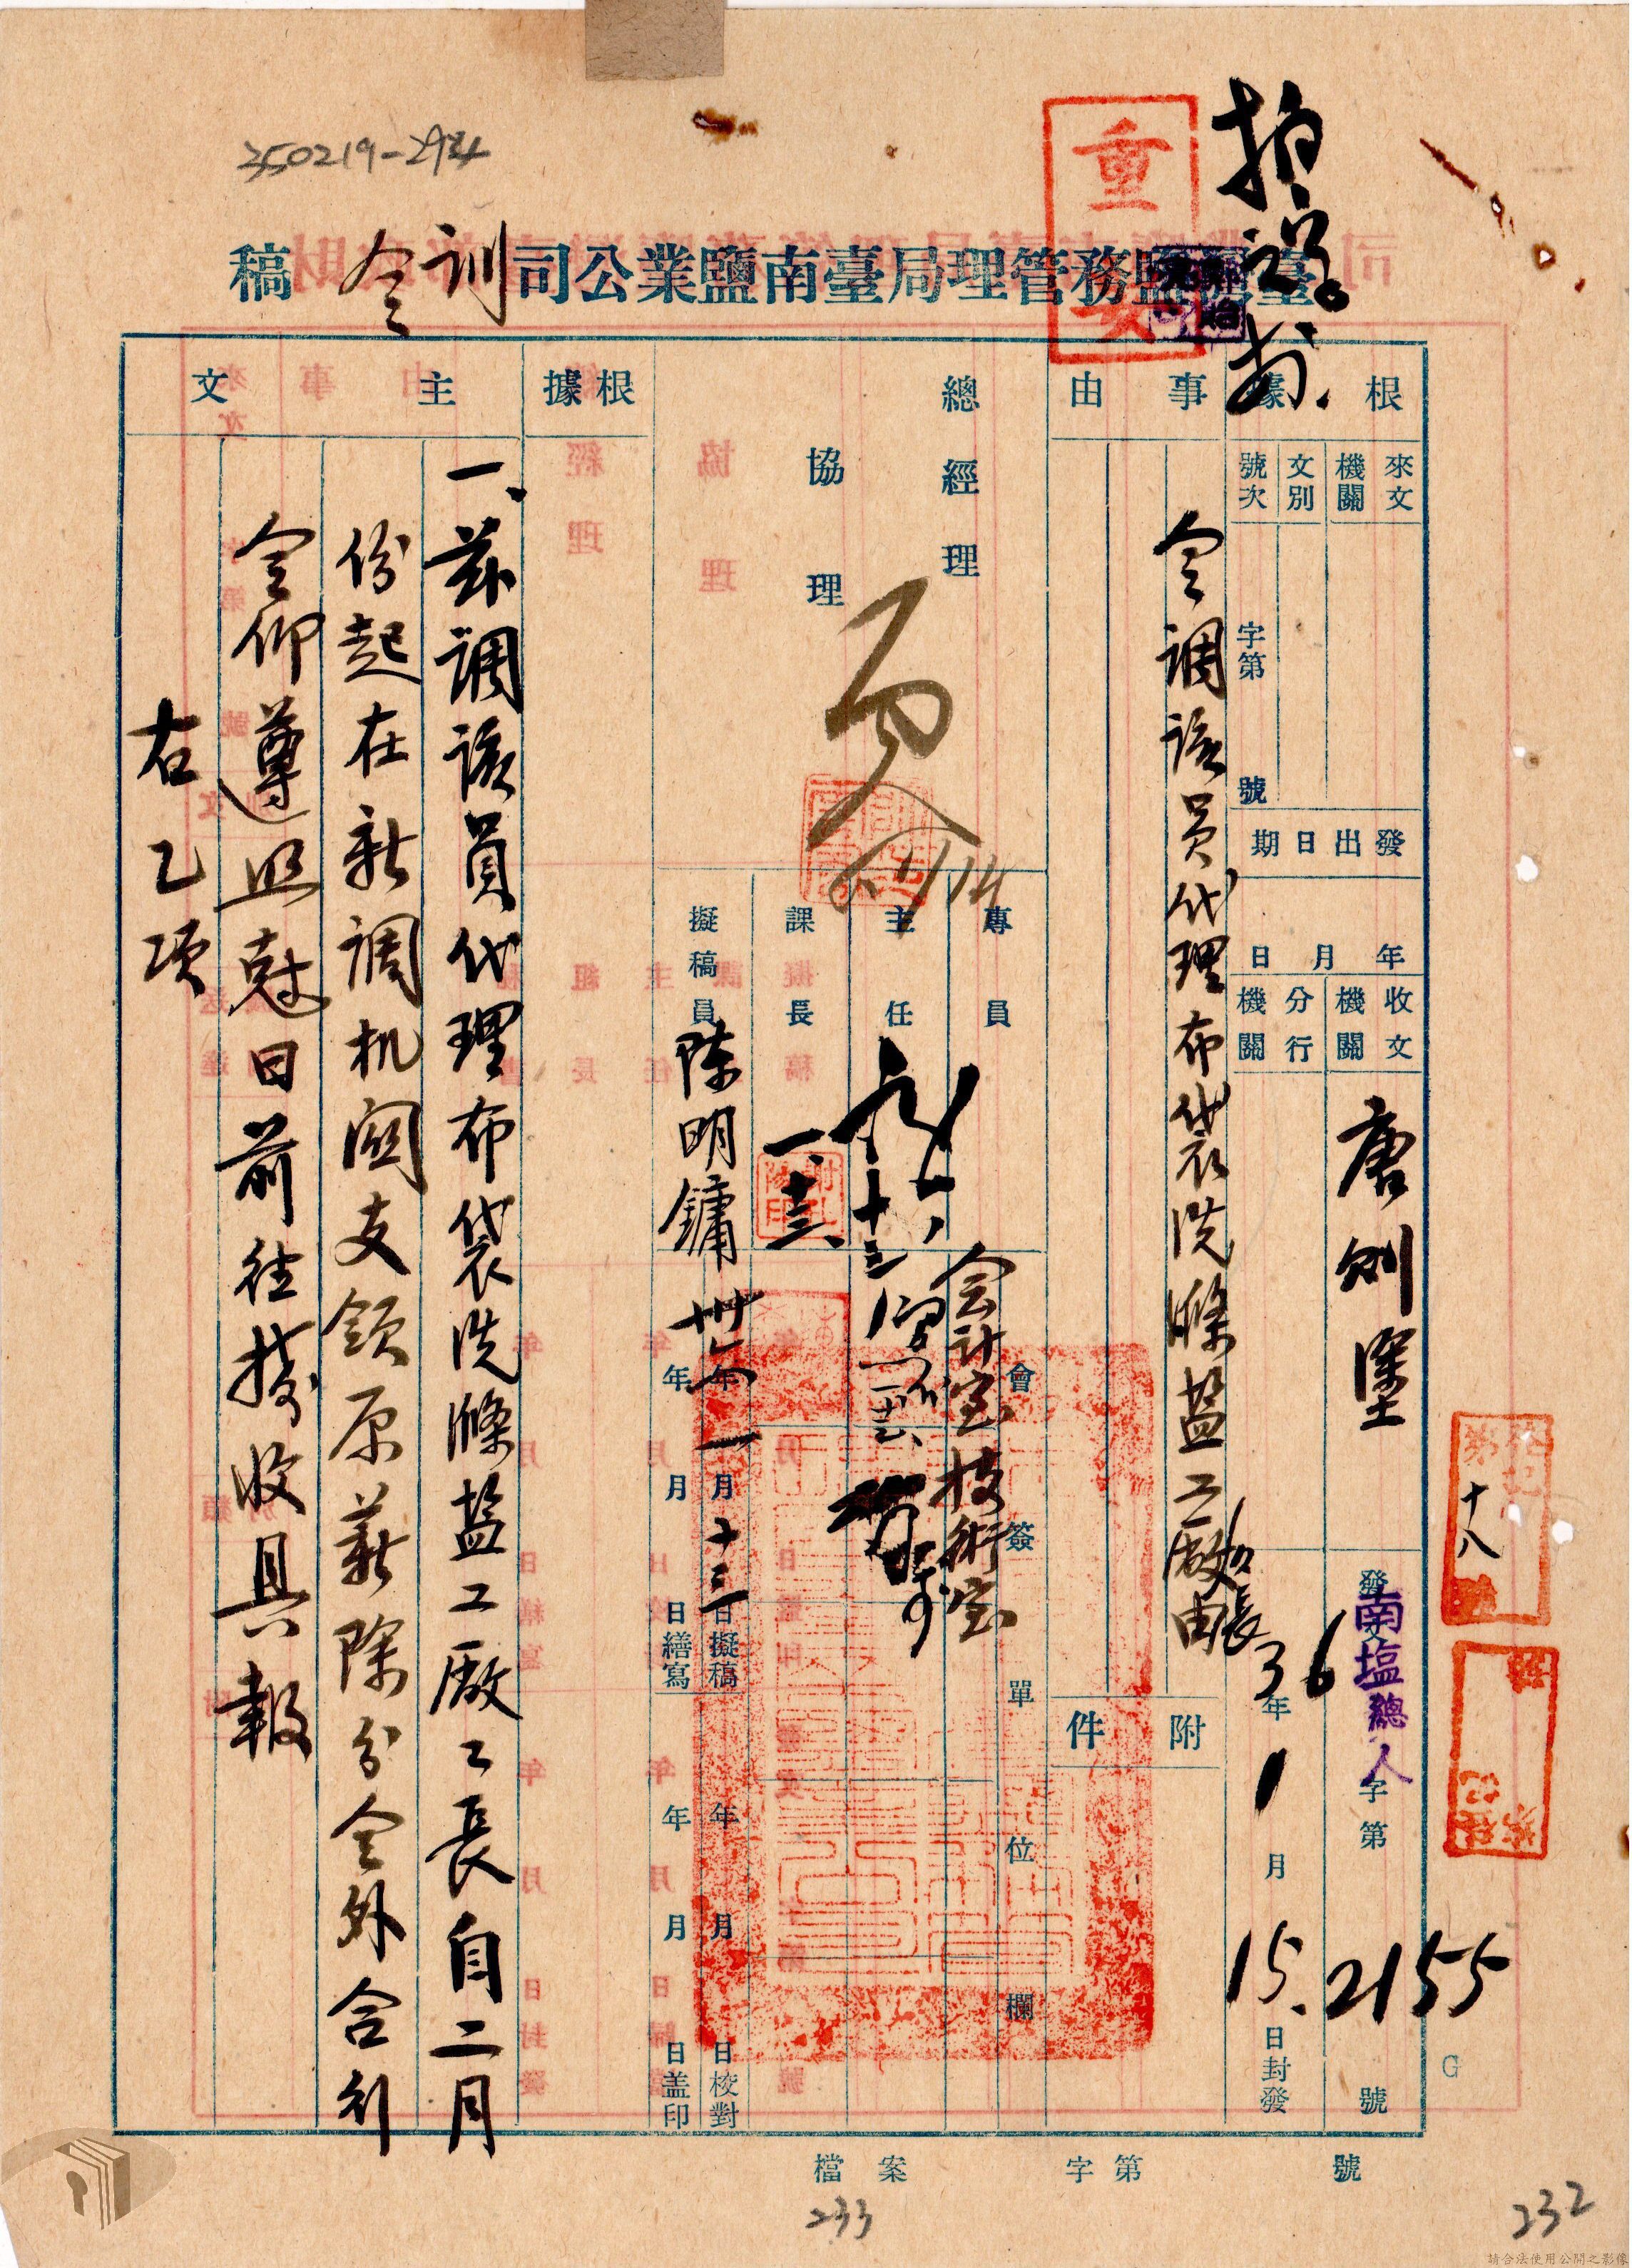 350219-294
重要
臺灣鹽務管理局臺南鹽業公司訓令稿
根據
來文機關
文別
號次
字第
號
發出日期
年月日
收文機關
唐釗
分行機關
發文
南塩總人
字第
2155
號
36年1月15日封發
事由
令調該員代理布袋洗滌盐工廠工長由
附件
總經理
協理
1/14
專員
主任
一、十三
課長
一、十三、
擬稿員
陳明鏞
會簽單位欄
会計室
技術室
卅六年一月十三日擬稿
年月日繕寫
年月日校對
年月日盖印
根據
主文
一、茲調該員代理布袋洗滌盐工廠工長自二月
份起在新調机関支領原薪除分令外合行
令仰遵照尅日前往接收具報
右乙項
第十八
檔案
字第
號
G
233
232
請合法使用公開之影像